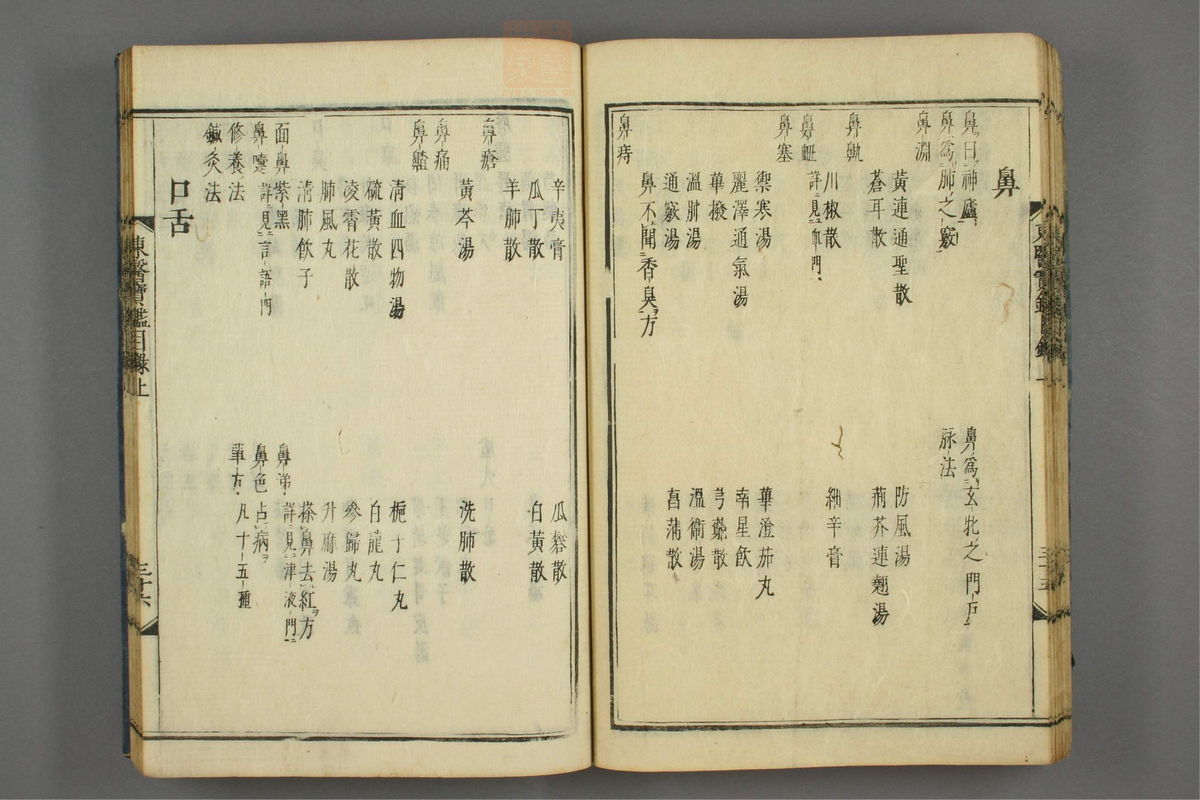 鼻
鼻曰神廬
鼻爲玄牝之門戶
鼻爲肺之竅
脉法
鼻淵
黃連通聖散
防風湯
蒼耳散
荊芥連翹湯
鼻鼽
川椒散
細辛膏
鼻衄
詳見血門
鼻塞
禦寒湯
蓽澄茄丸
麗澤通氣湯
南星飲
蓽撥
芎藭散
溫肺湯
溫衛湯
通竅湯
菖蒲散
鼻不聞香臭方
鼻痔
辛夷膏
瓜礬散
瓜丁散
白黃散
羊肺散
鼻瘡
黃芩湯
洗肺散
鼻痛
鼻齄
清血四物湯
梔子仁丸
硫黃散
白龍丸
凌霄花散
參歸丸
肺風丸
升麻湯
清肺飲子
搽鼻去紅方
面鼻紫黑
鼻涕
詳見津液門
鼻嚏
詳見言語門
鼻色占病
修養法
單方
凡十五種
鍼灸法
口舌
東醫寶鑑目錄上
三十六